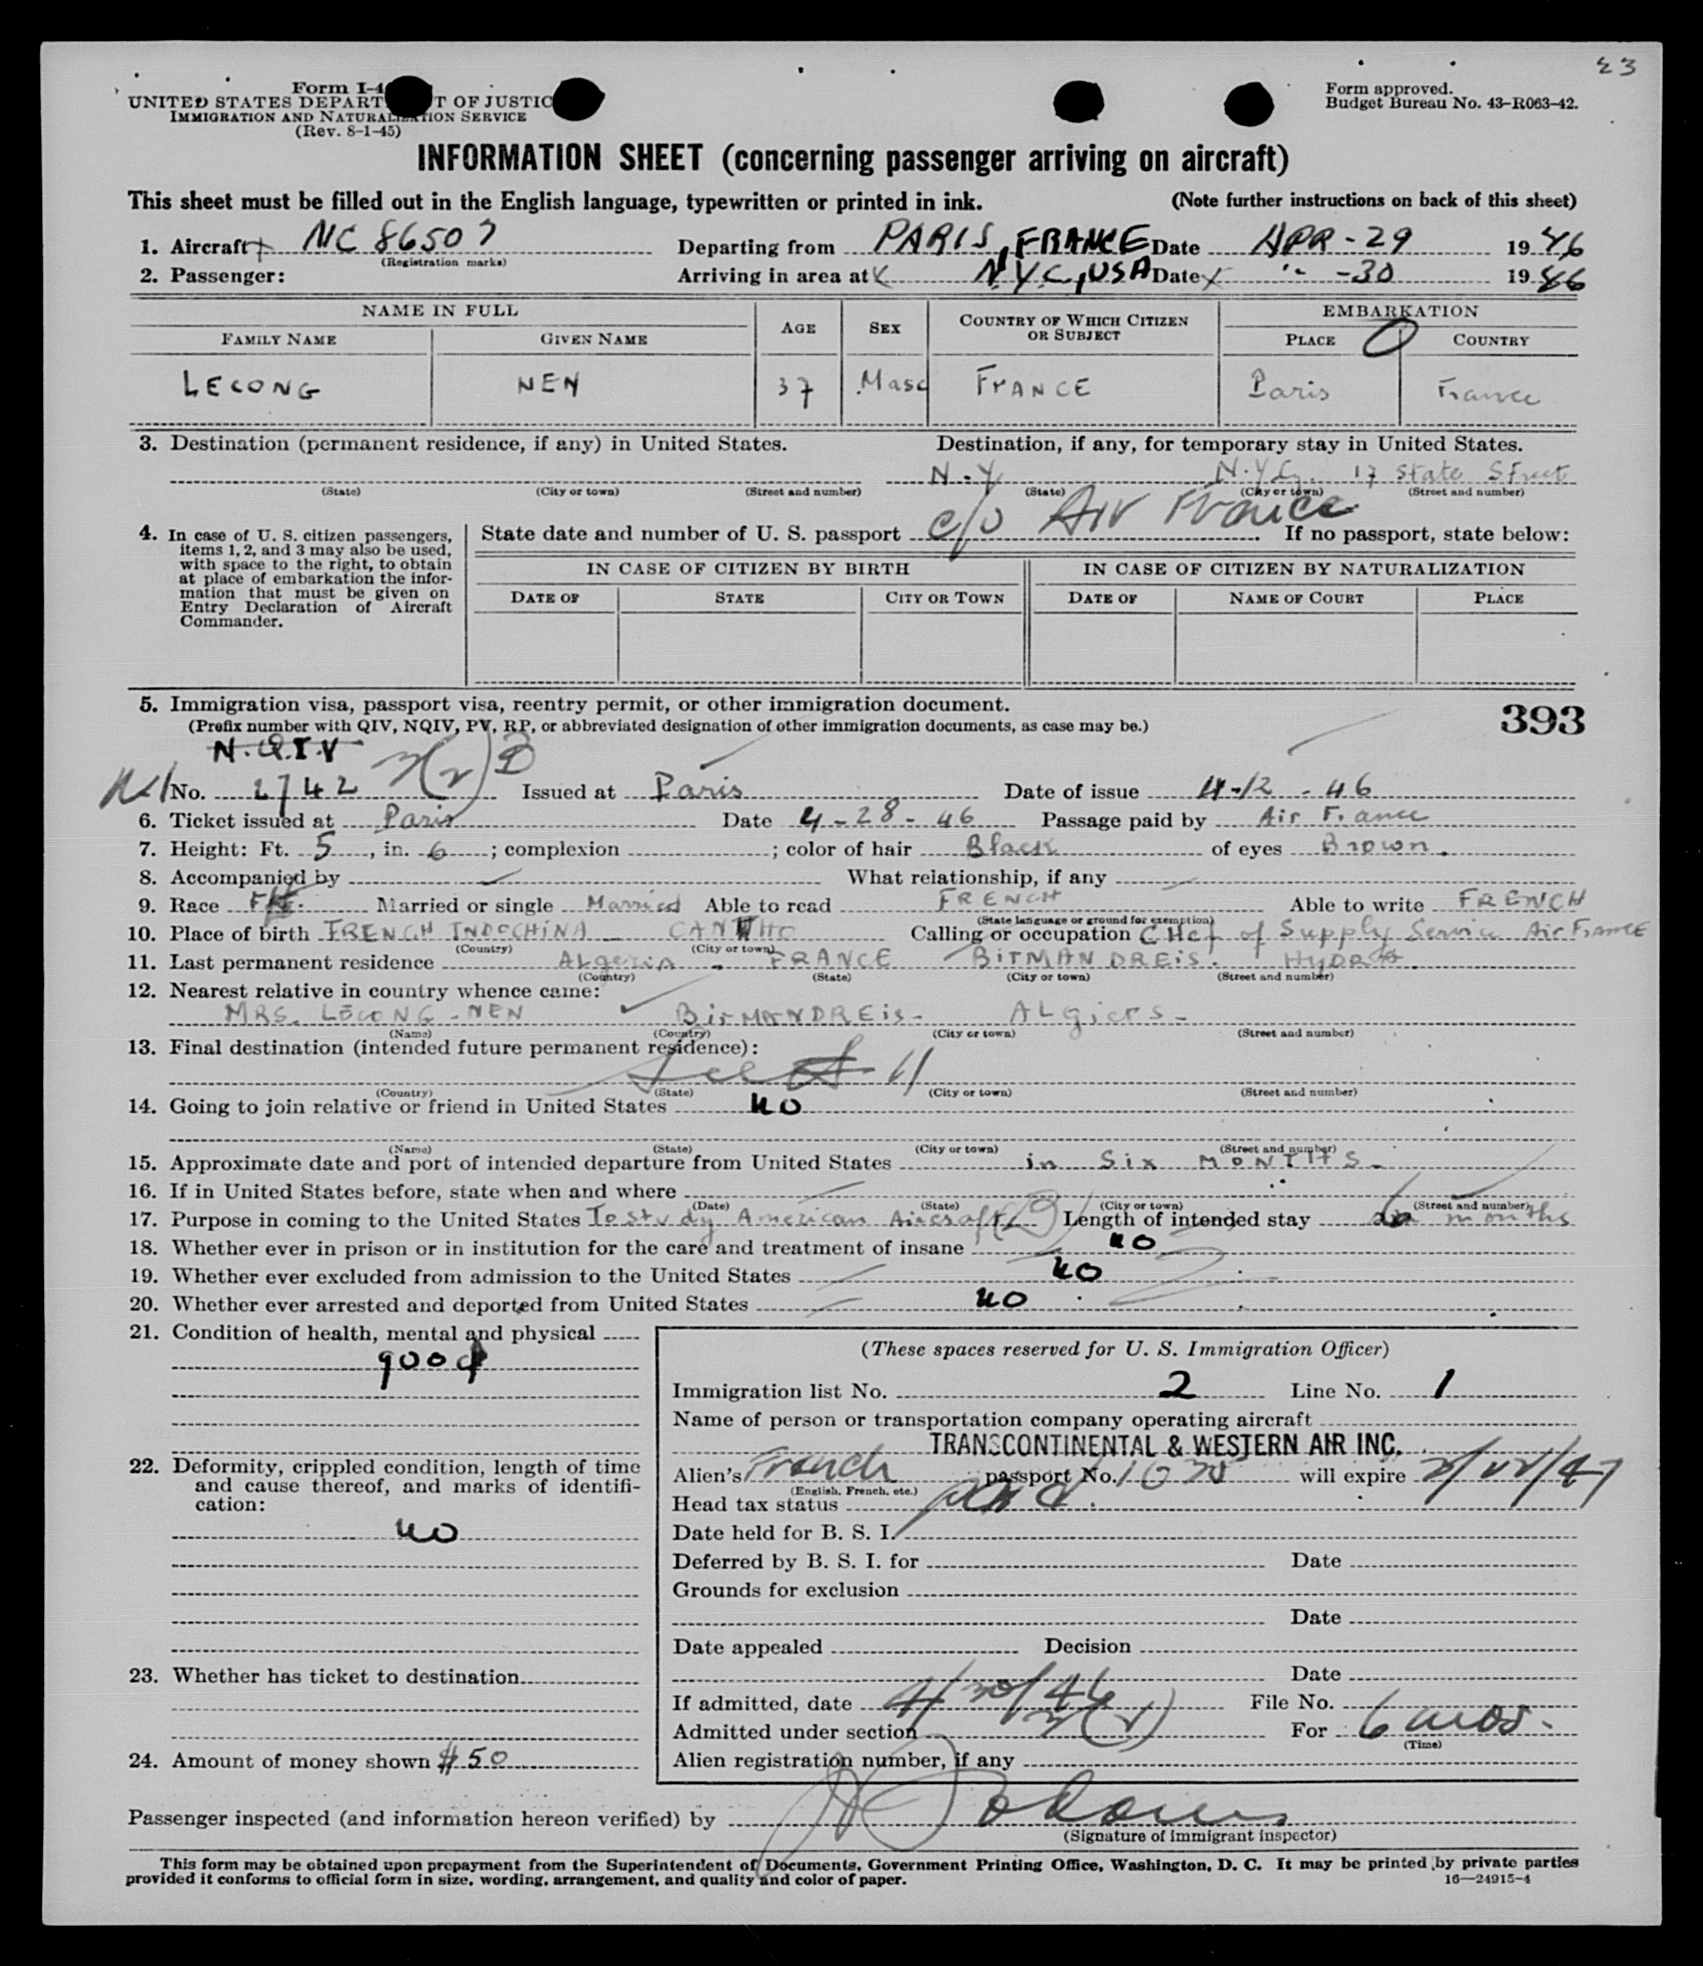 23
Form I-4
UNITED STATES DEPART T OF JUSTIC
IMMIGRATION AND NATURALIZATION SERVICE
(Rev. 8-1-45)
Form approved.
Budget Bureau No. 43-R063-42.
INFORMATION SHEET (concerning passenger arriving on aircraft)
This sheet must be filled out in the English language, typewritten or printed in ink. (Note further instructions on back of this sheet)
1. Aircraft NC 86507 Departing from PARIS, FRANCE Date APR-29 1946
(Registration marks)
2. Passenger: Arriving in area at N.Y.C, USA Date " -30 1946
NAME IN FULL AGE SEX COUNTRY OF WHICH CITIZEN OR SUBJECT EMBARKATION
FAMILY NAME GIVEN NAME PLACE COUNTRY
LECONG NEN 37 Masc FRANCE Paris France
3. Destination (permanent residence, if any) in United States. Destination, if any, for temporary stay in United States.
N.Y N.Y.C. 17 State Street
(State) (City or town) (Street and number) (State) (City or town) (Street and number)
4. In case of U. S. citizen passengers, items 1, 2, and 3 may also be used, with space to the right, to obtain at place of embarkation the information that must be given on Entry Declaration of Aircraft Commander.
State date and number of U. S. passport c/o Air France. If no passport, state below:
IN CASE OF CITIZEN BY BIRTH IN CASE OF CITIZEN BY NATURALIZATION
DATE OF STATE CITY OR TOWN DATE OF NAME OF COURT PLACE
5. Immigration visa, passport visa, reentry permit, or other immigration document.
(Prefix number with QIV, NQIV, PV, RP, or abbreviated designation of other immigration documents, as case may be.) 393
N.Q.I.V 3(2)B
No. 2742 Issued at Paris Date of issue 4-12-46
6. Ticket issued at Paris Date 4-28-46 Passage paid by Air France
7. Height: Ft. 5, in. 6; complexion ; color of hair Black of eyes Brown.
8. Accompanied by What relationship, if any
9. Race Married or single Married Able to read FRENCH Able to write FRENCH
(State language or ground for exemption)
10. Place of birth FRENCH INDOCHINA - CANTHO Calling or occupation CHef of Supply Service Air FRANCE
(Country) (City or town)
11. Last permanent residence Algeria - FRANCE BIRMANDREIS. HYDRA.
(Country) (State) (City or town) (Street and number)
12. Nearest relative in country whence came:
MRS. LECONG-NEN BirMANDREis- ALgiers-
(Name) (Country) (City or town) (Street and number)
13. Final destination (intended future permanent residence):
See # 11
(Country) (State) (City or town) (Street and number)
14. Going to join relative or friend in United States no
(Name) (State) (City or town) (Street and number)
15. Approximate date and port of intended departure from United States in Six MONTHS-
16. If in United States before, state when and where
(Date) (State) (City or town) (Street and number)
17. Purpose in coming to the United States To study American Aircraft Length of intended stay 6 months
18. Whether ever in prison or in institution for the care and treatment of insane no
19. Whether ever excluded from admission to the United States no
20. Whether ever arrested and deported from United States no
21. Condition of health, mental and physical
good
22. Deformity, crippled condition, length of time and cause thereof, and marks of identification:
no
23. Whether has ticket to destination
24. Amount of money shown $50
(These spaces reserved for U. S. Immigration Officer)
Immigration list No. 2 Line No. 1
Name of person or transportation company operating aircraft
TRANSCONTINENTAL & WESTERN AIR INC.
Alien's French passport No. will expire
(English, French, etc.)
Head tax status
Date held for B. S. I.
Deferred by B. S. I. for Date
Grounds for exclusion
Date
Date appealed Decision
Date
If admitted, date 4/30/46 File No.
Admitted under section 3(2) For 6 mos.
(Time)
Alien registration number, if any
Passenger inspected (and information hereon verified) by
(Signature of immigrant inspector)
This form may be obtained upon prepayment from the Superintendent of Documents, Government Printing Office, Washington, D. C. It may be printed by private parties
provided it conforms to official form in size, wording, arrangement, and quality and color of paper. 16—24915-4